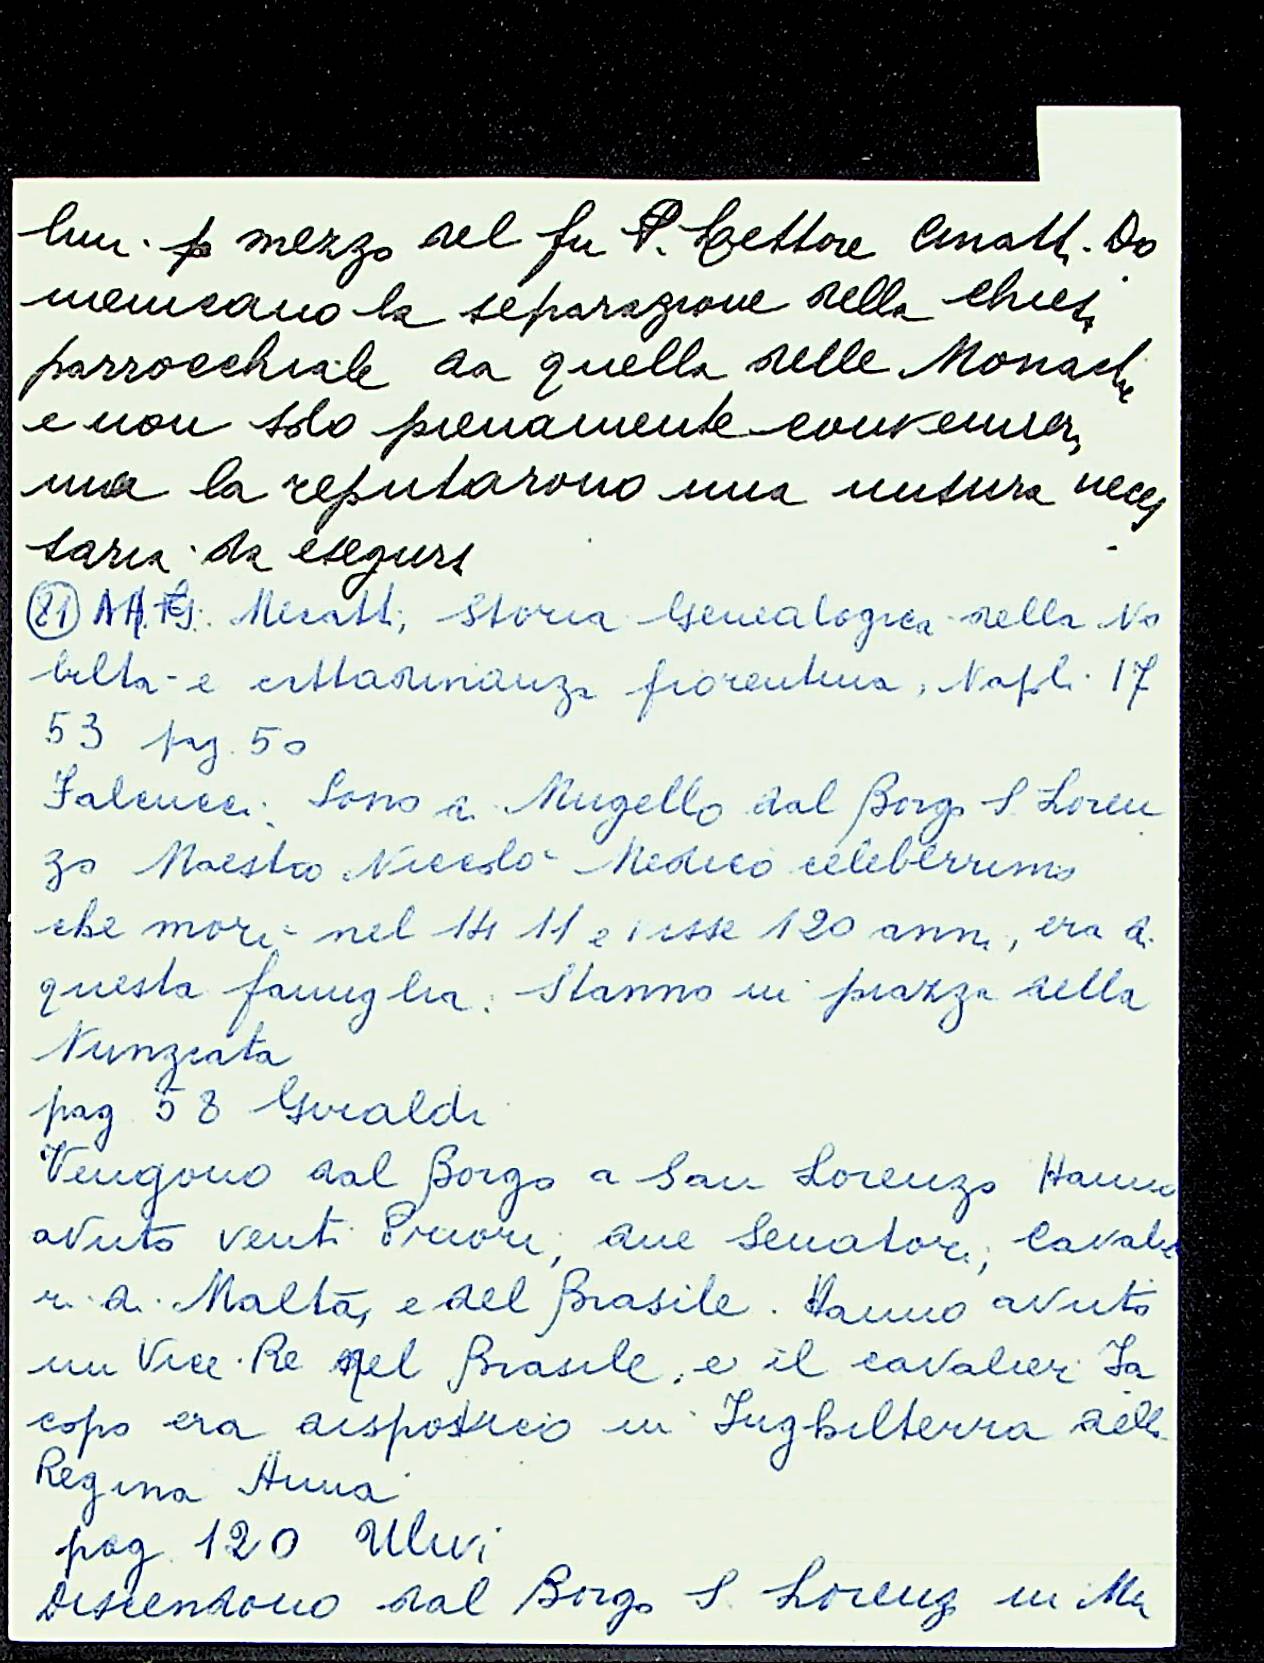 lun. p mezzo del fu P. Lettore Amati. Do
menicano la separazione della Chiesa
parrocchiale da quella delle Monache
e non solo pienamente convennero,
ma la reputarono una misura neces
saria da eseguirsi
(21) Mecatti, Storia Genealogica della No
biltà e cittadinanza fiorentina, Napoli 17
53 pag. 50
Falcucci. Sono di Mugello dal Borgo S. Loren
zo Maestro Niccolò Medico celeberrimo
che morì nel 1411 e visse 120 anni, era di
questa famiglia. Stanno in piazza della
Nunziata
pag 58 Giraldi
Vengono dal Borgo a San Lorenzo Hanno
avuto venti Priori, due Senatori, Cavalie
ri di Malta, e del Brasile. Hanno avuto
un Vice Re nel Brasile, e il cavalier Ja
copo era in Inghilterra della
Regina Anna
pag. 120 Ulivi
Discendono dal Borgo S. Lorenzo in Mu